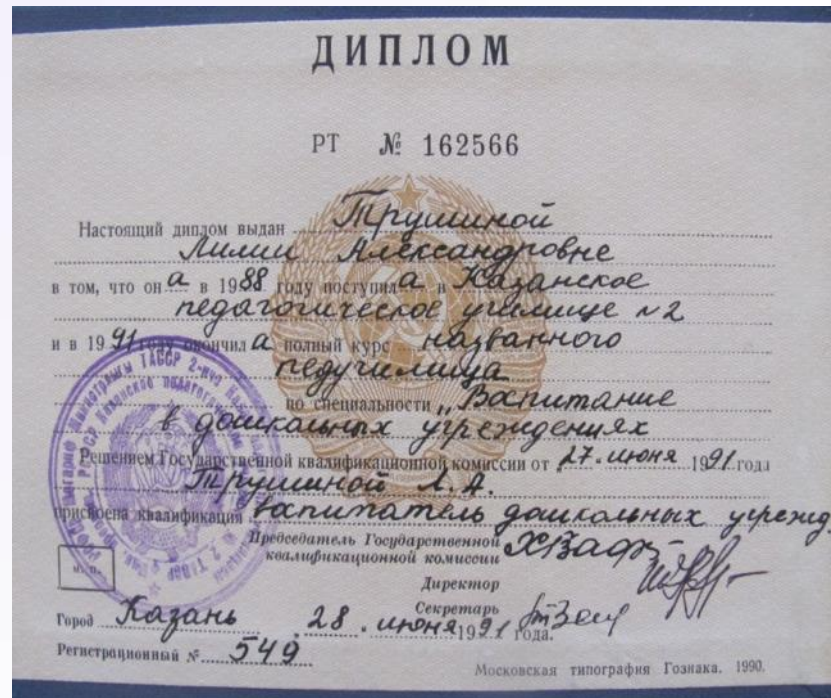 ДИПЛОМ
РТ № 162566
Настоящий диплом выдан Трушиной
Лилии Александровне
в том, что он а в 1988 году поступил а в Казанское
педагогическое училище №2
и в 1991 году окончил а полный курс названного
педучилища
по специальности „Воспитание
в дошкольных учреждениях
Решением Государственной квалификационной комиссии от 27. июня 1991 года
Трушиной Л.А.
присвоена квалификация воспитатель дошкольных учрежд.
Председатель Государственной
квалификационной комиссии
Директор
Секретарь
М. П.
Город Казань 28. июня 1991 года.
Регистрационный № 549
Московская типография Гознака. 1990.